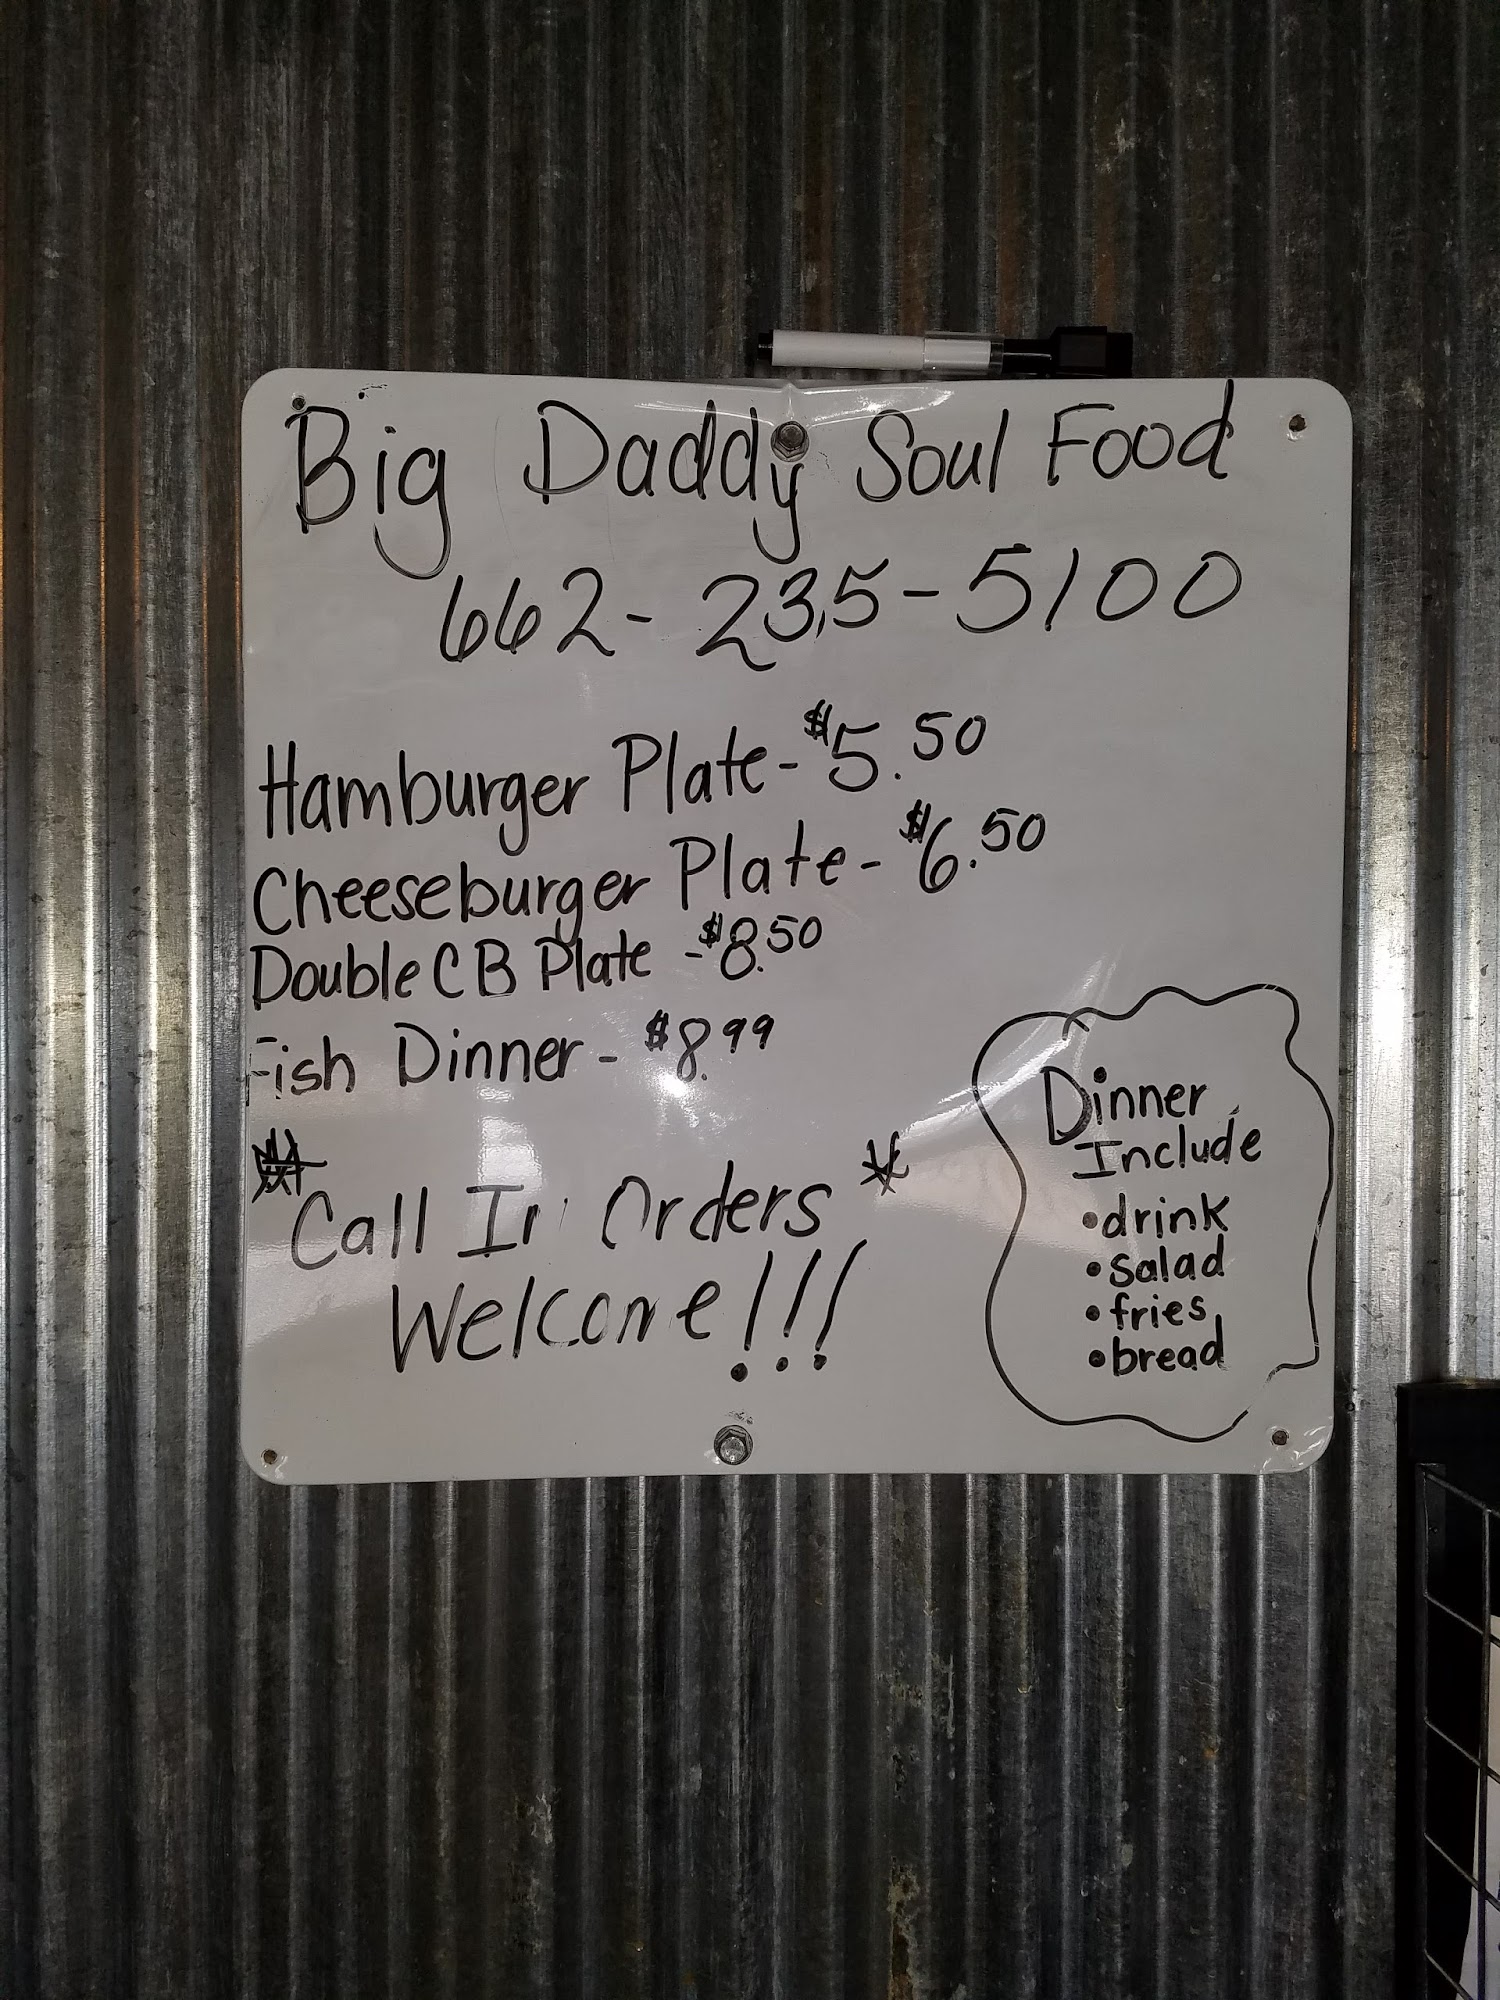 Big Daddy Soul Food
662-235-5100
Hamburger Plate - $5.50
Cheeseburger Plate - $6.50
Double CB Plate - $8.50
Fish Dinner - $8.99
* Call In Orders *
Welcome!!!
Dinner
Include
• drink
• salad
• fries
• bread